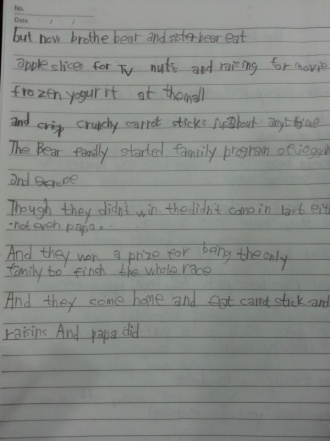 No.
Date / /
but now brothe bear and sister bear eat
apple slices for TV nuts and raising for movie
frozen yogurrt at themall
and crisp crunchy carrot sticks about anytime
The Bear family started family program of
and
Though they didnt win thedidnt come in last eit
-not even papa.
And they won a prize for being the only
family to finch the whole race
And they come home and eat carrot stick and
raisins And papa did